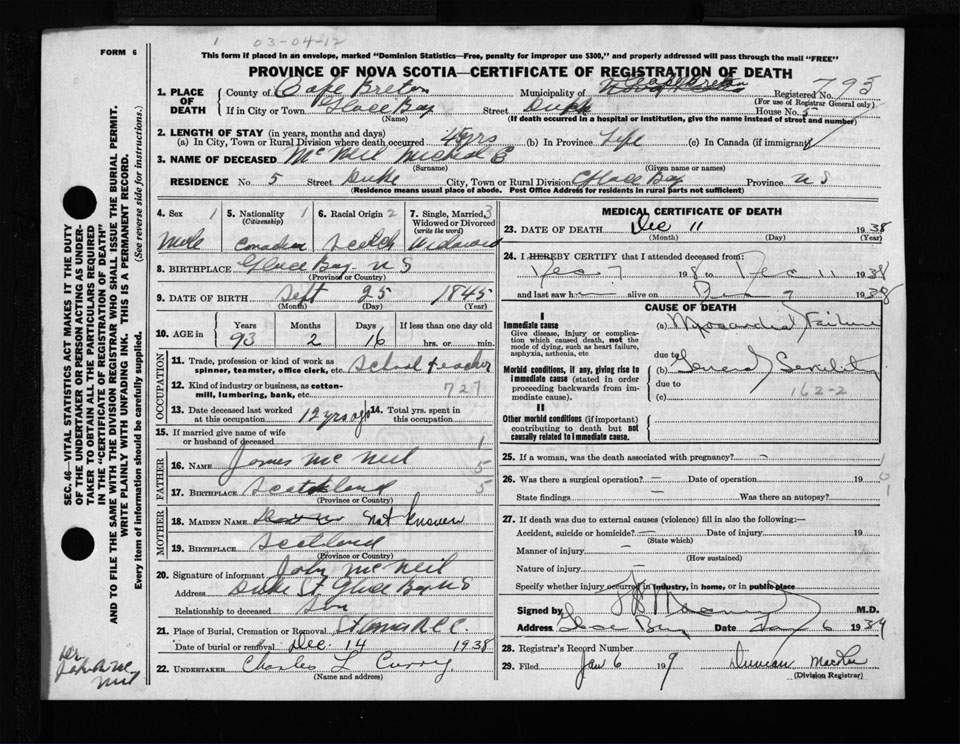 03-04-12
FORM 6
This form if placed in an envelope, marked "Dominion Statistics—Free, penalty for improper use $300," and properly addressed will pass through the mail "FREE"
PROVINCE OF NOVA SCOTIA—CERTIFICATE OF REGISTRATION OF DEATH
1. PLACE OF DEATH
County of Cape Breton Municipality of Cape Breton Registered No. 793
(For use of Registrar General only)
If in City or Town Glace Bay Street Duke House No. 5
(Name) (If death occurred in a hospital or institution, give the name instead of street and number)
2. LENGTH OF STAY (in years, months and days)
(a) In City, Town or Rural Division where death occurred 45 yrs (b) In Province Life (c) In Canada (if immigrant)
3. NAME OF DECEASED McNeil Michael
(Surname) (Given name or names)
RESIDENCE No. 5 Street Duke City, Town or Rural Division Glace Bay Province N S
(Residence means usual place of abode. Post Office Address for residents in rural parts not sufficient)
4. Sex 1 5. Nationality 1 (Citizenship) 6. Racial Origin 2 7. Single, Married, 3 Widowed or Divorced (write the word)
Male Canadian Scotch Widowed
8. BIRTHPLACE Glace Bay N S
(Province or Country)
9. DATE OF BIRTH Sept 25 1845
(Month) (Day) (Year)
10. AGE in Years Months Days If less than one day old
93 2 16 hrs. or min.
OCCUPATION
11. Trade, profession or kind of work as spinner, teamster, office clerk, etc. School teacher
12. Kind of industry or business, as cotton-mill, lumbering, bank, etc. 727
13. Date deceased last worked at this occupation 12 yrs ago 14. Total yrs. spent in this occupation
15. If married give name of wife or husband of deceased
FATHER
16. NAME James McNeil 5
17. BIRTHPLACE Scotland 5
(Province or Country)
MOTHER
18. MAIDEN NAME not known
19. BIRTHPLACE Scotland
(Province or Country)
20. Signature of informant John McNeil
Address Duke St Glace Bay N S
Relationship to deceased Son
21. Place of Burial, Cremation or Removal
Date of burial or removal Dec. 14 1938
22. UNDERTAKER Charles L Curry
(Name and address)
MEDICAL CERTIFICATE OF DEATH
23. DATE OF DEATH Dec 11 1938
(Month) (Day) (Year)
24. I HEREBY CERTIFY that I attended deceased from:
Dec 7 1938 to Dec 11 1938
and last saw h alive on Dec 7 1938
CAUSE OF DEATH
I
Immediate cause
Give disease, injury or complication which caused death, not the mode of dying, such as heart failure, asphyxia, asthenia, etc
(a) Myocardial Failure
due to
Morbid conditions, if any, giving rise to immediate cause (stated in order proceeding backwards from immediate cause).
(b) General Senility
due to 162-2
(c)
II
Other morbid conditions (if important) contributing to death but not causally related to immediate cause.
25. If a woman, was the death associated with pregnancy? —
26. Was there a surgical operation? — Date of operation 19
State findings — Was there an autopsy?
27. If death was due to external causes (violence) fill in also the following:—
Accident, suicide or homicide? — Date of injury 19
(State which)
Manner of injury —
(How sustained)
Nature of injury —
Specify whether injury occurred in industry, in home, or in public place
Signed by M.D.
Address Glace Bay Date Jan 6 1939
28. Registrar's Record Number
29. Filed Jan 6 1939 Duncan
(Division Registrar)
SEC. 46—VITAL STATISTICS ACT MAKES IT THE DUTY
OF THE UNDERTAKER OR PERSON ACTING AS UNDERTAKER TO OBTAIN ALL THE PARTICULARS REQUIRED
IN THE "CERTIFICATE OF REGISTRATION OF DEATH"
AND TO FILE THE SAME WITH THE DIVISION REGISTRAR WHO SHALL ISSUE THE BURIAL PERMIT.
WRITE PLAINLY WITH UNFADING INK. THIS IS A PERMANENT RECORD.
Every item of information should be carefully supplied. (See reverse side for instructions.)